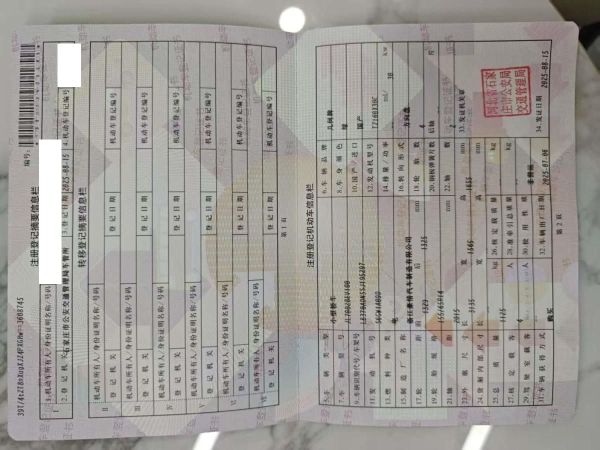 注册登记摘要信息栏
编号:
1.机动车所有人/身份证明名称/号码
2.登记机关 石家庄市公安交通管理局车管所 3.登记日期 2025-08-15 4.机动车登记编号
转移登记摘要信息栏
机动车所有人/身份证明名称/号码
登记机关 登记日期 机动车登记编号
机动车所有人/身份证明名称/号码
登记机关 登记日期 机动车登记编号
机动车所有人/身份证明名称/号码
登记机关 登记日期 机动车登记编号
机动车所有人/身份证明名称/号码
登记机关 登记日期 机动车登记编号
机动车所有人/身份证明名称/号码
登记机关 登记日期 机动车登记编号
机动车所有人/身份证明名称/号码
登记机关 登记日期 机动车登记编号
第1页
注册登记机动车信息栏
5.车辆类型 小型轿车 6.车辆品牌 几何牌
7.车辆型号 8.车身颜色 绿
9.车辆识别代号/车架号 10.国产/进口 国产
11.发动机号 12.发动机型号 TZ160XS3DC
13.燃料种类 电 14.排量/功率 ml/ 30 kw
15.制造厂名称 浙江豪情汽车制造有限公司 16.转向形式 方向盘
17.轮距 前 1329 后 1325 18.轮胎数 4
19.轮胎规格 155/65R14 20.钢板弹簧片数 后轴 片
21.轴距 2015 22.轴数 2
23.外廓尺寸 长 3135 宽 1565 高 1655
24.货厢内部尺寸 长 宽 高
25.总质量 1125 kg 26.核定载质量 kg
27.核定载客 4 人 28.准牵引总质量 kg
29.驾驶室载客 人 30.使用性质 非营运
31.车辆获得方式 购买 32.车辆出厂日期 2025-07-06
33.发证机关章
河北省石家庄市公安局交通管理局
34.发证日期 2025-08-15
第2页